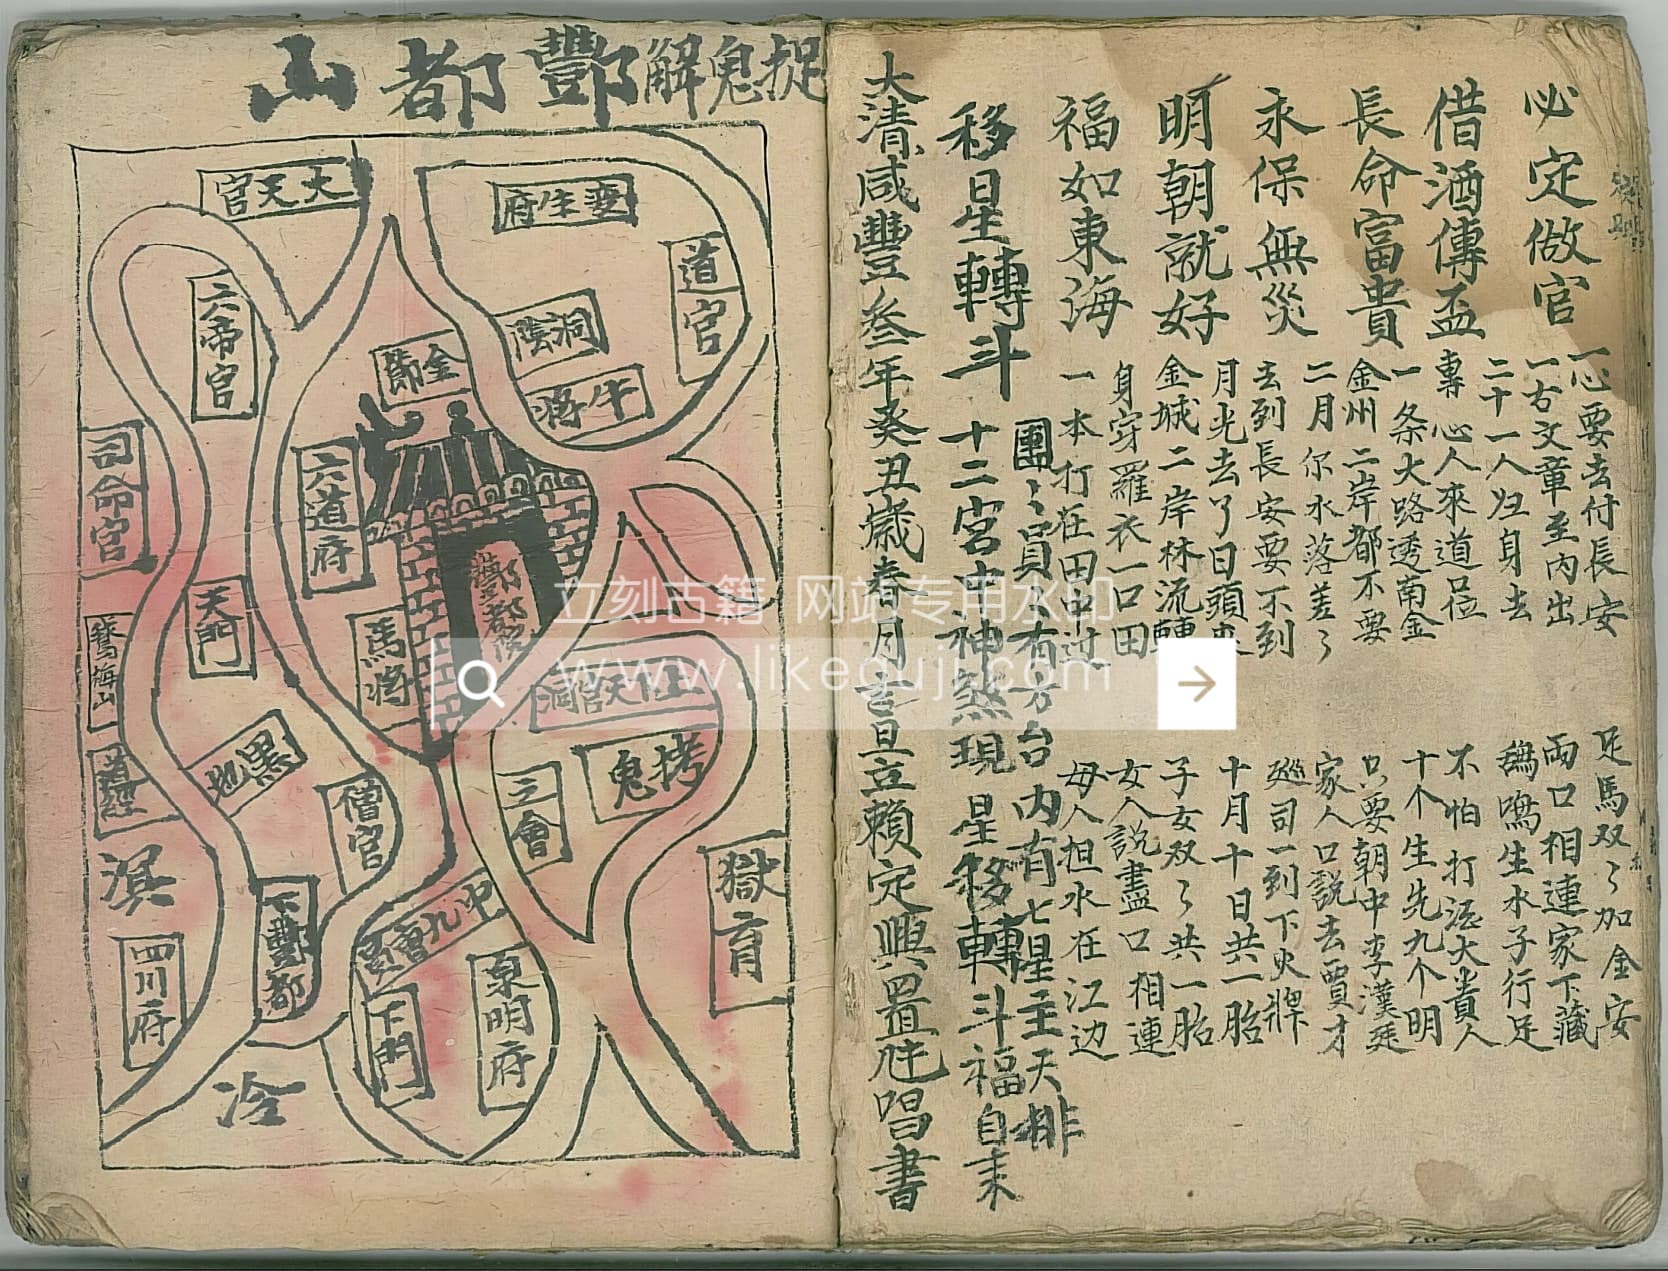 必定做官
一心要去付長安
一古文章至內出
足馬双々加金安
兩口相連家下藏
借酒傳盃
二十一人归身去
專心人來道位
鵝鳴生水子行足
不怕打酒大貴人
長命富貴
一条大路透南金
金州二岸都不要
十个生先九个明
只要朝中李漢廷
永保無災
二月尔水落差々
去到長安要不到
家人口說去買才
廵司一到下火牌
明朝就好
月光去了日頭
金城二岸林流轉
十月十日共一胎
子女双々共一胎
福如東海
身穿羅衣一口田
一本打在田中过
女人説盡口相連
母人担水在江边
移星轉斗
團々員 有 方台內有七星主天排
十二宮中神煞現
星移轉斗福自来
大清咸豐叁年癸丑歲春月吉旦立賴定興置 唱書
捉鬼解酆都山
大天官
道官
洞陰
牛將
金節
六帝官
六道府
司命官
天門
馬將
酆都
梅山
黑地
僧官
三會
拷鬼
上下天官洞
獄育
溟
四川府
下酆都
中九曹
下門
泉明府
冷
立刻古籍 网站专用水印
www.likeguji.com